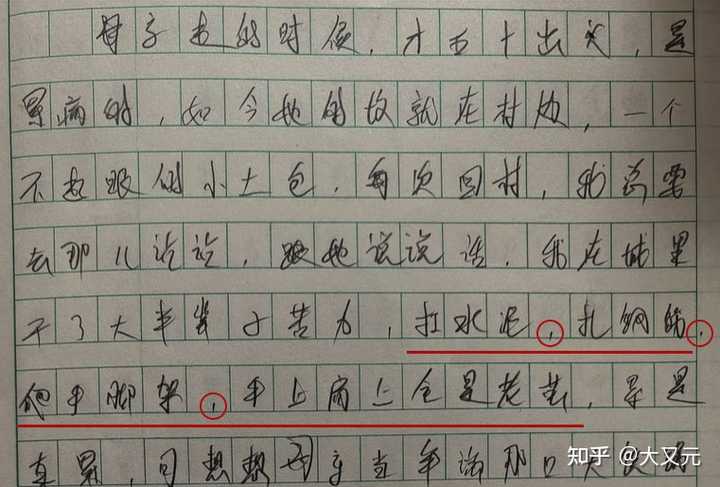 母亲走的时候,才五十出头,是
累病的,如今她的坟就在村边,一个
不起眼的小土包,每次回村,我总要
去那儿,跟她说说话。我在城里
干了大半辈子苦力,扛水泥,扎钢筋,
爬手脚架,手上肩上全是老茧,累是
真累,可想想母亲当年那口
知乎 @大又元